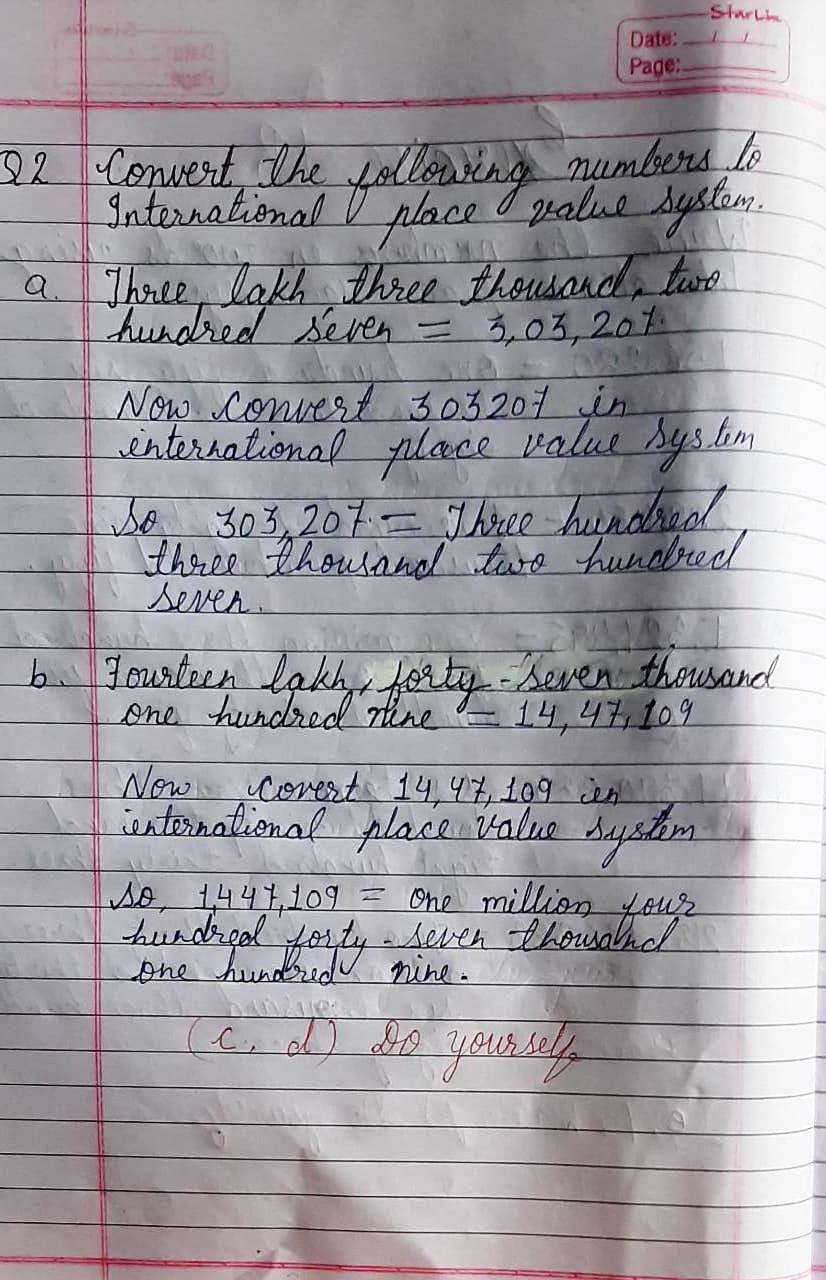 StarLin
Date: / /
Page:
Q2 Convert the following numbers to
International place value system.
a. Three lakh three thousand, two
hundred seven = 3,03,207.
Now convert 303207 in
international place value system
So 303,207. = Three hundred
three thousand two hundred
seven.
b. Fourteen lakh, forty-seven thousand
one hundred nine = 14,47,109
Now covert 14,47,109 in
international place value system
So, 1,447,109 = One million four
hundred forty-seven thousand
one hundred nine.
(c, d) Do yourself.